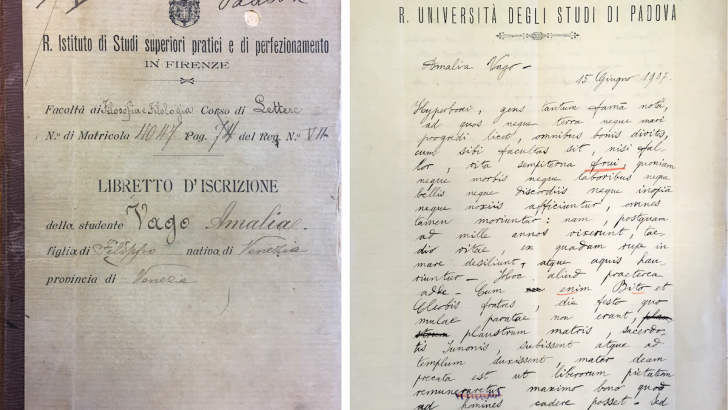 Padova
R. Istituto di Studi superiori pratici e di perfezionamento
IN FIRENZE
Facoltà di Filosofia e Filologia Corso di Lettere
N.º di Matricola 11047 Pag. 74 del Reg. N.º VII
LIBRETTO D'ISCRIZIONE
della studente Vago Amalia
figlia di Filippo nativa di Venezia
provincia di Venezia
R. UNIVERSITÀ DEGLI STUDI DI PADOVA
Amalia Vago -
15 Giugno 1917.
Hyperborei, gens tantum famā nota,
ad quos neque terra neque mari
progredi licet, omnibus bonis divites,
cum sibi facultas sit, nisi fal-
lor, vita sempiterna frui, quoniam
neque morbis neque laboribus neque
bellis neque discordiis neque inopiā
neque noxiis afficiuntur, omnes
tamen moriuntur: nam, postquam
ad mille annos vixerunt, tae-
dio vitae, ex quadam rupe in
mare desiliunt, atque aquis pau-
riuntur - Hoc aliud praeterea
adde Cum enim Bito et
Cleobis fratres, die festo quo
mulae paratae non erant,
plaustrum matris, sacerdo-
tis Junonis, subissent atque ad
templum duxissent, mater deam
precata est ut liberorum pietatem
remuneraretur maximo bono quod
ad homines cadere posset - sed